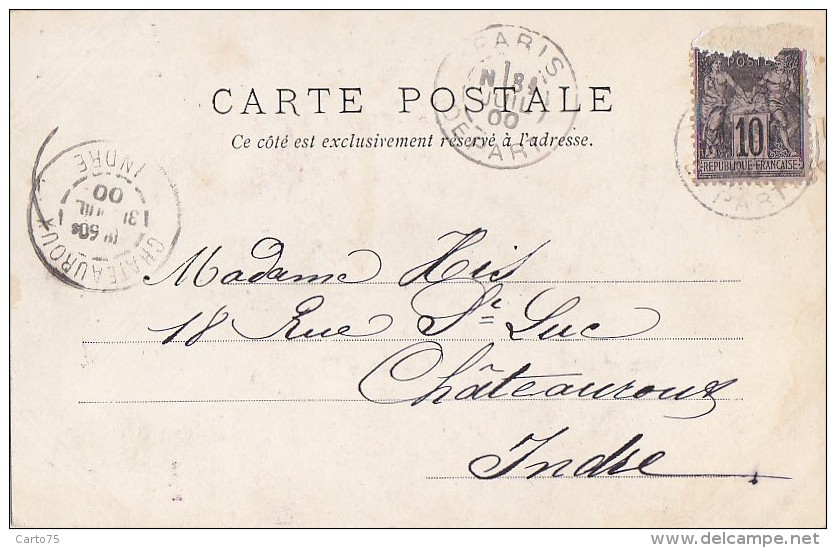 PARIS
DEPART
JUIL
00
POSTE
10
REPUBLIQUE FRANÇAISE
PARI
CARTE POSTALE
Ce côté est exclusivement réservé à l'adresse.
CHATEAUROU
INDRE
31
00
Madame His
18 Rue St Luc
Châteauroux
Indre
Carto75
delcampe.net